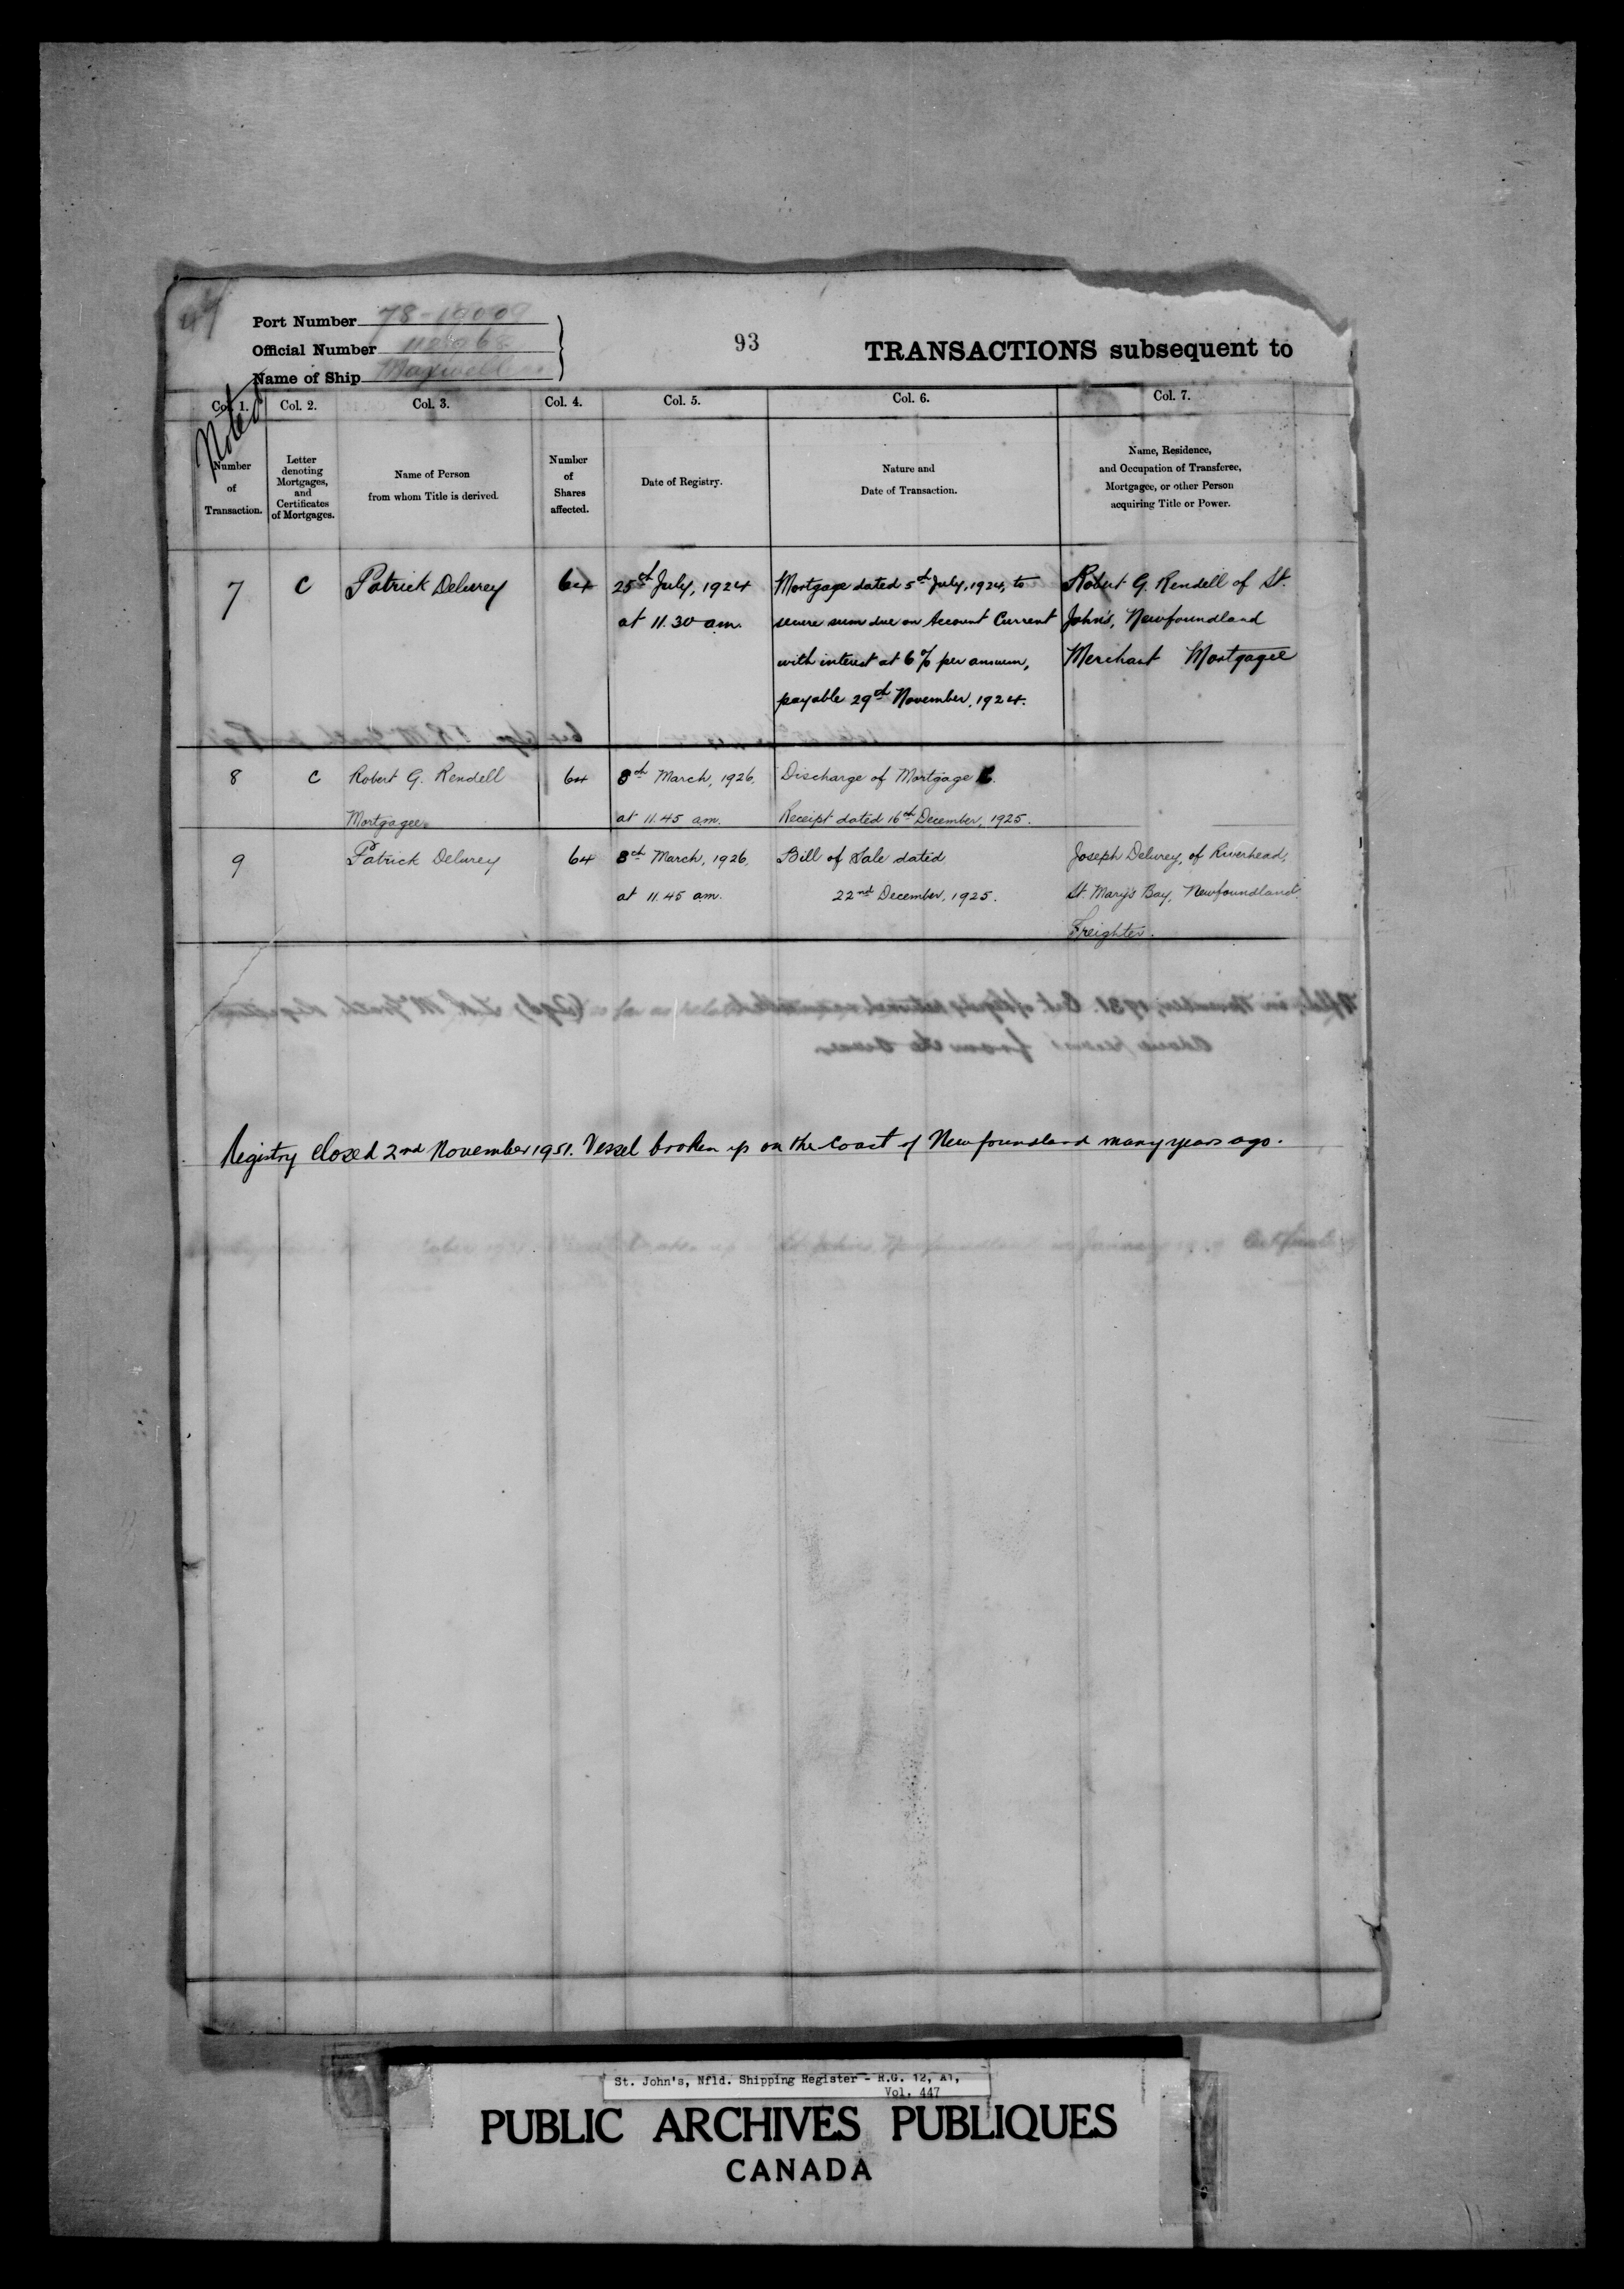 Port Number 78-
Official Number
Name of Ship
93
TRANSACTIONS subsequent to
Noted
Col. 1.
Col. 2.
Col. 3.
Col. 4.
Col. 5.
Col. 6.
Col. 7.
Number
of
Transaction.
Letter
denoting
Mortgages,
and
Certificates
of Mortgages.
Name of Person
from whom Title is derived.
Number
of
Shares
affected.
Date of Registry.
Nature and
Date of Transaction.
Name, Residence,
and Occupation of Transferee,
Mortgagee, or other Person
acquiring Title or Power.
7 C Patrick Delurey 64 25th July, 1924 Mortgage dated 5th July, 1924, to Robert G. Rendell of St.
at 11.30 am. secure sum due on Account Current John's, Newfoundland
with interest at 6% per annum, Merchant Mortgagee
payable 29th November, 1924.
8 C Robert G. Rendell 64 8th March, 1926, Discharge of Mortgage C.
Mortgagee. at 11.45 am. Receipt dated 16th December, 1925.
9 Patrick Delurey 64 8th March, 1926, Bill of Sale dated Joseph Delurey, of Riverhead,
at 11.45 am. 22nd December, 1925. St. Mary's Bay, Newfoundland.
Freighter.
Registry closed 2nd November 1951. Vessel broken up on the Coast of Newfoundland many years ago.
St. John's, Nfld. Shipping Register - R.G. 12, A1,
Vol. 447
PUBLIC ARCHIVES PUBLIQUES
CANADA